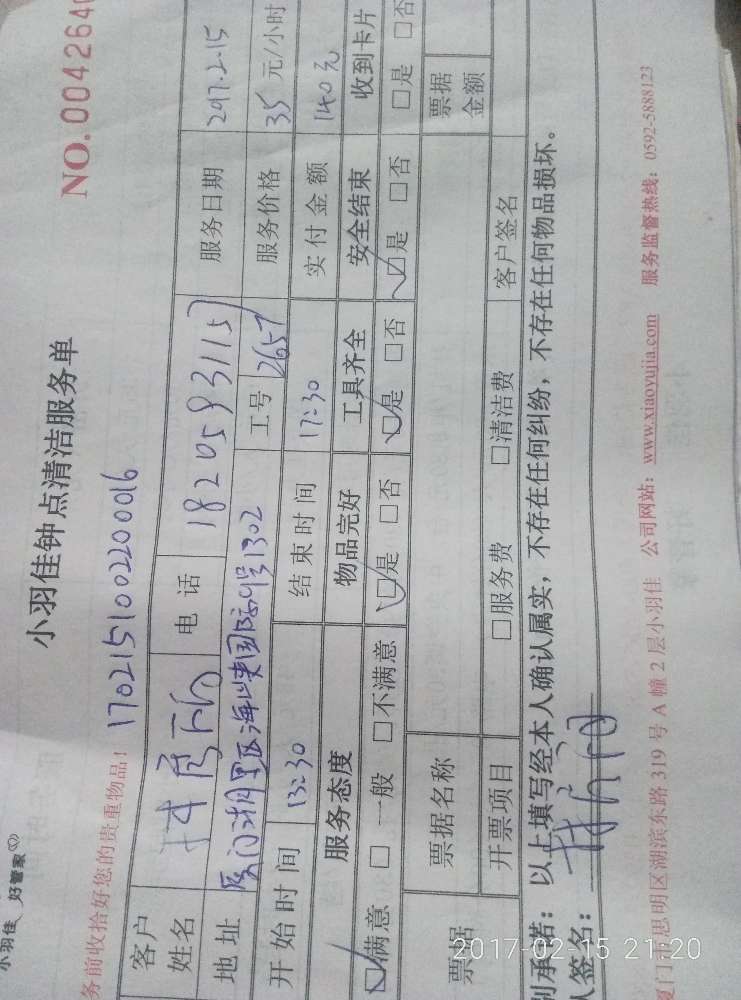 小羽佳 好管家
NO.0042640
小羽佳钟点清洁服务单
务前收拾好您的贵重物品！ 1702151002200016
客户姓名 电话 18205931157 服务日期 2017.2.15
地址 厦门湖里区海峡国际 1302 工号 2657 服务价格 35 元/小时
开始时间 13:30 结束时间 17:30 实付金额 140元
服务态度 物品完好 工具齐全 安全结束 收到卡片
☑满意 □一般 □不满意 ☑是 □否 ☑是 □否 ☑是 □否 □是 □否
票据 票据名称 票据金额
开票项目 □服务费 □清洁费 客户签名
别承诺：以上填写经本人确认属实，不存在任何纠纷，不存在任何物品损坏。
人签名：
厦门市思明区湖滨东路 319 号 A 幢 2 层小羽佳 公司网站：www.xiaoyujia.com 服务监督热线：0592-5888123
2017-02-15 21:20